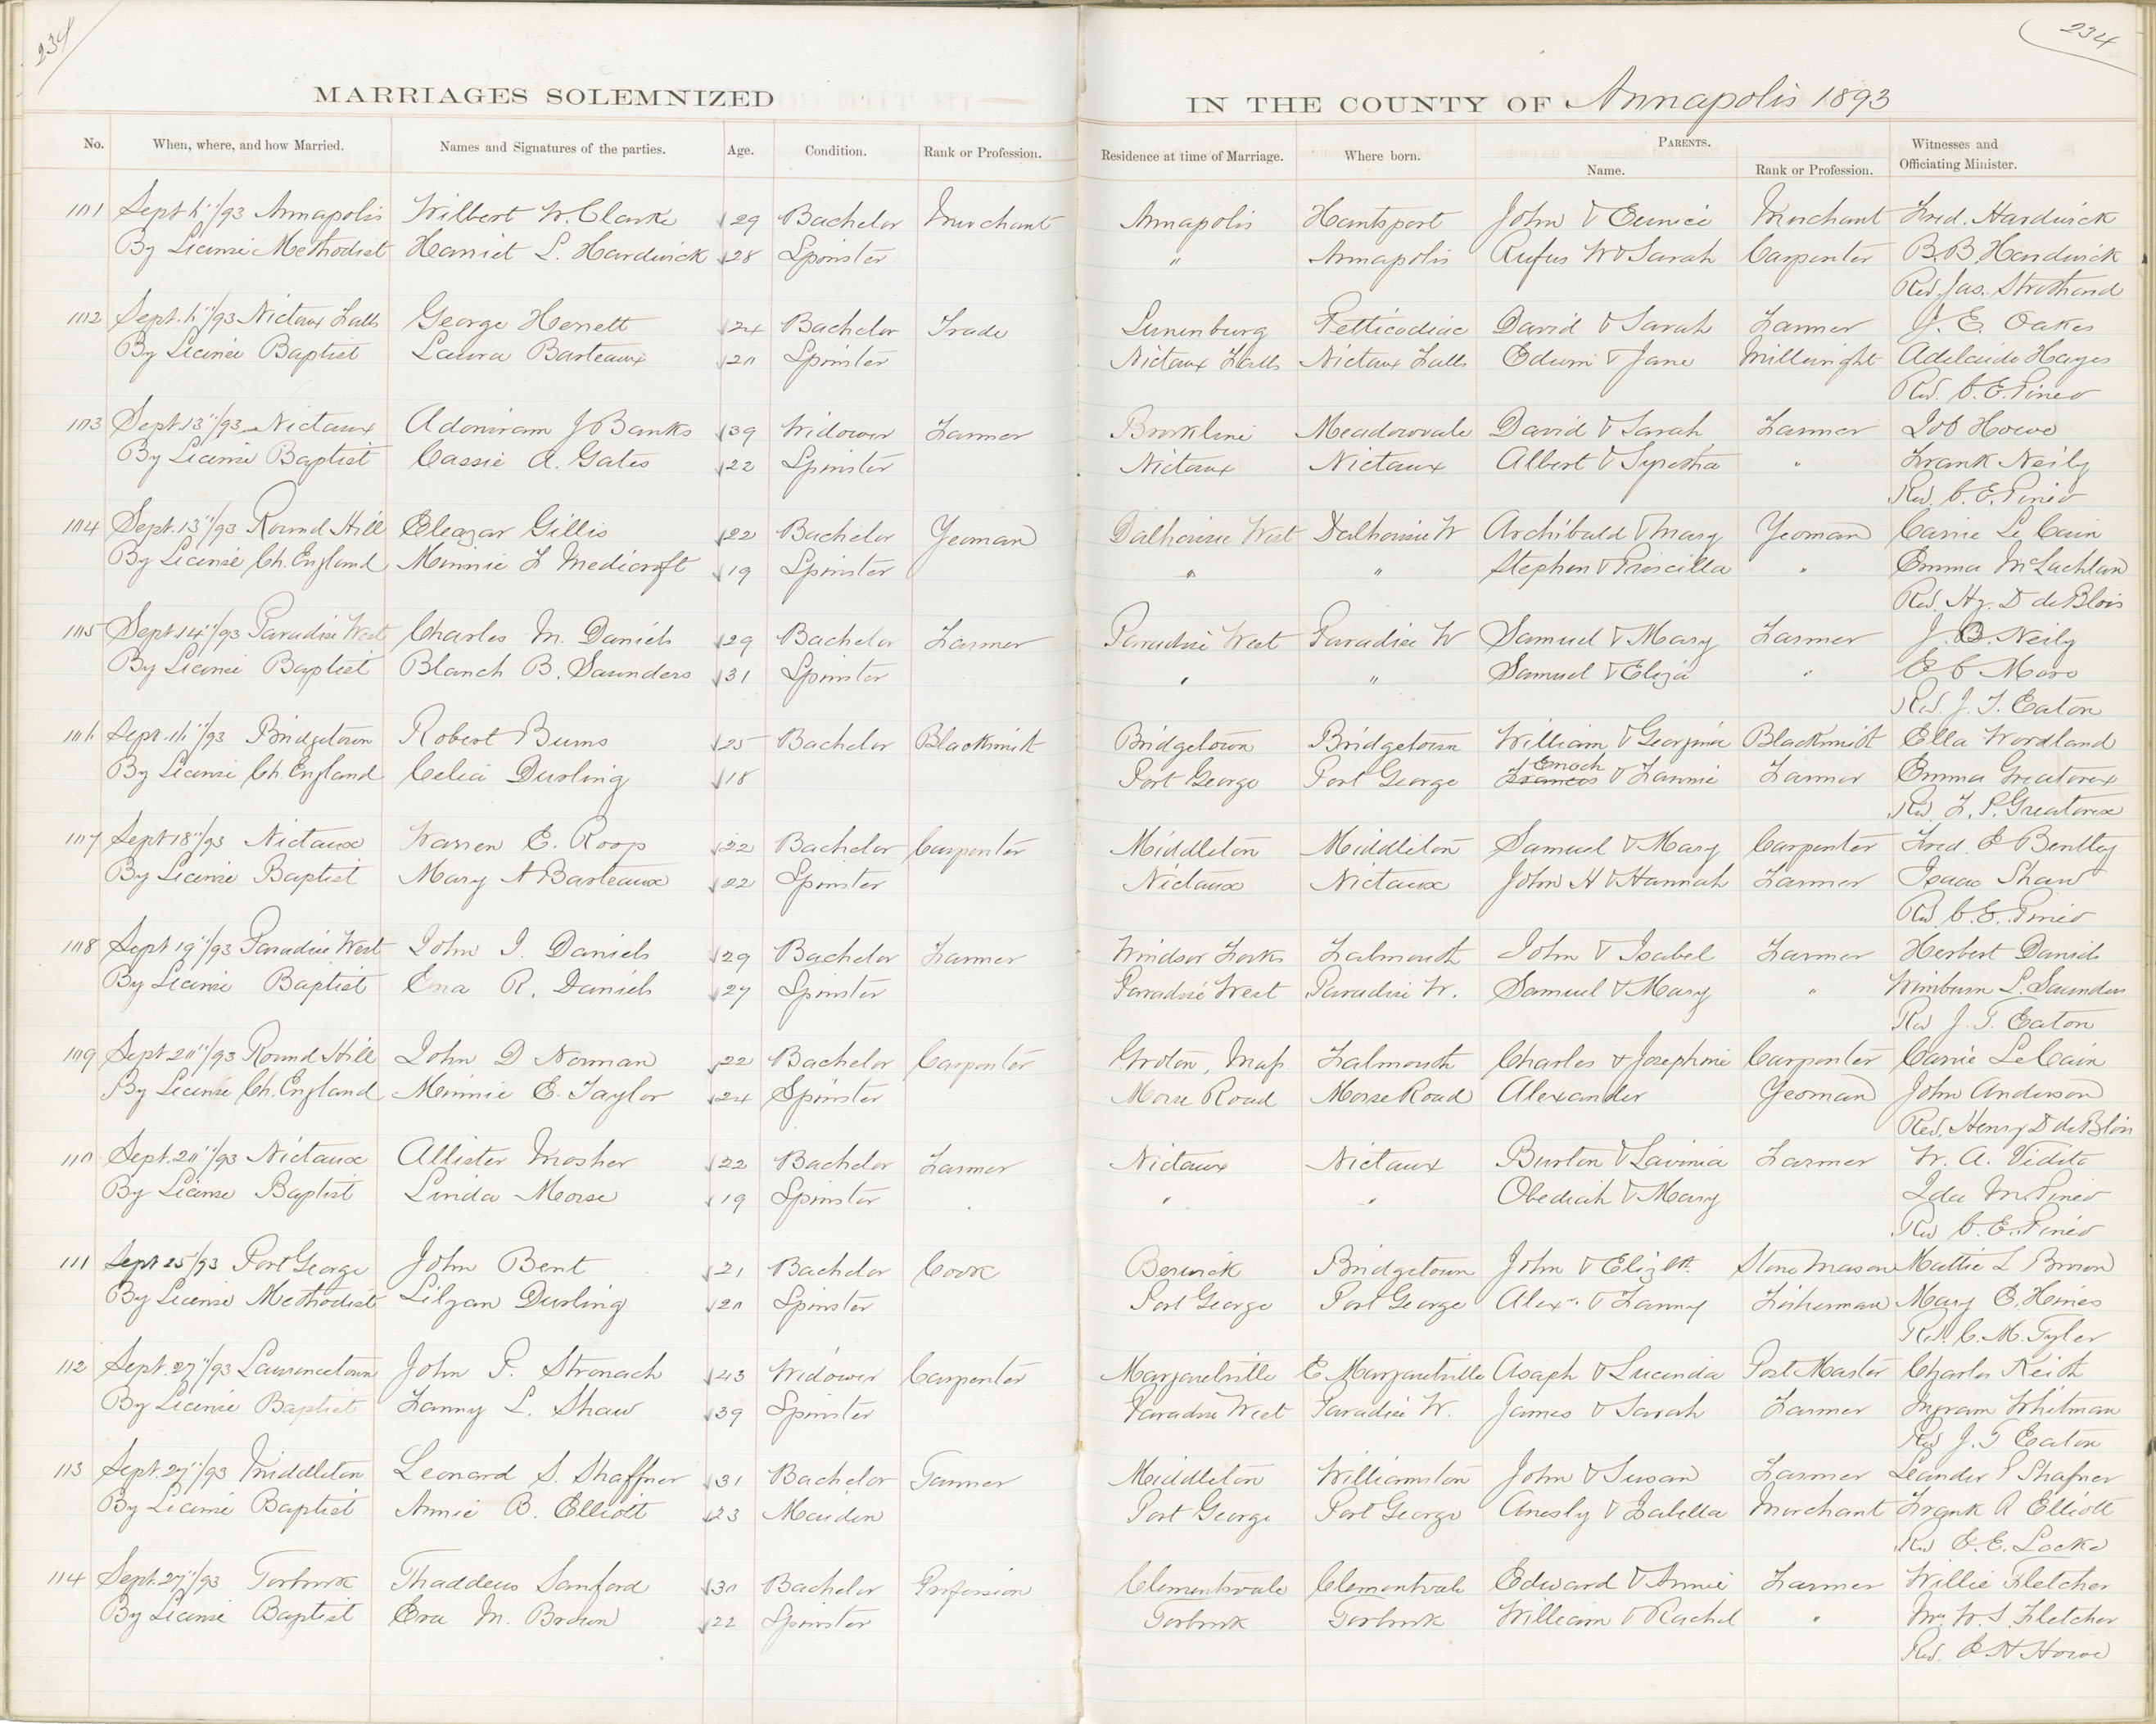 234
234
MARRIAGES SOLEMNIZED IN THE COUNTY OF Annapolis 1893
No. When, where, and how Married. Names and Signatures of the parties. Age. Condition. Rank or Profession. Residence at time of Marriage. Where born. PARENTS. Name. Rank or Profession. Witnesses and Officiating Minister.
101 Sept 6"/93 Annapolis Wilbert W. Clarke 29 Bachelor Merchant Annapolis Hantsport John & Eunice Merchant Fred. Hardwick
By License Methodist Harriet L. Hardwick 28 Spinster " Annapolis Rufus W & Sarah Carpenter B. B. Hardwick
Rev. Jas. Strothard
102 Sept. 6"/93 Nictaux Falls George Herrett 24 Bachelor Trade Lunenburg Petticodiac David & Sarah Farmer J. E. Oakes
By License Baptist Laura Barteaux 20 Spinster Nictaux Falls Nictaux Falls Edwin & Jane Millwright Adelaide Hayes
Rev. C. E. Pineo
103 Sept. 13"/93 Nictaux Adoniram J Banks 39 Widower Farmer Brookline Meadowvale David & Sarah Farmer Job Howe
By License Baptist Cassie A. Gates 22 Spinster Nictaux Nictaux Albert & " Frank Neily
Rev. C. E. Pineo
104 Sept. 13"/93 Round Hill Eleazar Gillis 22 Bachelor Yeoman Dalhousie West Dalhousie W Archibald & Mary Yeoman Carrie Le Cain
By License Ch. England Minnie F Medicroft 19 Spinster " " Stephen & Priscilla " Emma McLachlan
Rev. Hy. D deBlois
105 Sept. 14"/93 Paradise West Charles M. Daniels 29 Bachelor Farmer Paradise West Paradise W Samuel & Mary Farmer J. B. Neily
By License Baptist Blanch B. Saunders 31 Spinster " " Samuel & Eliza " E C
Rev. J. T. Eaton
106 Sept. 16"/93 Bridgetown Robert Burns 25 Bachelor Blacksmith Bridgetown Bridgetown William & Georgina Blacksmith Ella Woodland
By License Ch. England Celia Durling 18 Port George Port George Francis Enoch & Fannie Farmer Emma Greatorex
Rev. F. P. Greatorex
107 Sept 18"/93 Nictaux Warren E. Roop 22 Bachelor Carpenter Middleton Middleton Samuel & Mary Carpenter Fred. E Bentley
By License Baptist Mary A Barteaux 22 Spinster Nictaux Nictaux John H & Hannah Farmer Isaac Shaw
Rev C. E. Pineo
108 Sept 19"/93 Paradise West John I. Daniels 29 Bachelor Farmer Windsor Forks Falmouth John & Isabel Farmer Herbert Daniels
By License Baptist Ena R. Daniels 27 Spinster Paradise West Paradise W. Samuel & Mary " Wimburn L. Saunders
Rev J. T. Eaton
109 Sept 20"/93 Round Hill John D Norman 22 Bachelor Carpenter Groton, Mass. Falmouth Charles & Josephine Carpenter Carrie LeCain
By License Ch. England Minnie E. Taylor 24 Spinster Morse Road Morse Road Alexander Yeoman John Anderson
Rev. Henry D deBlois
110 Sept. 20"/93 Nictaux Allister Mosher 22 Bachelor Farmer Nictaux Nictaux Burton & Lavinia Farmer W. A. Vidito
By License Baptist Linda Morse 19 Spinster " " Obediah & Mary Ida M. Pineo
Rev C. E. Pineo
111 Sept 25/93 Port George John Bent 21 Bachelor Cook Berwick Bridgetown John & Elizth. Stone Mason Mattie L Brown
By License Methodist Lilyan Durling 20 Spinster Port George Port George Alexr. & Fanny Fisherman Mary E. Hines
Rev. C. M. Tyler
112 Sept. 27"/93 Lawrencetown John P. Stronach 43 Widower Carpenter Margaretville E Margaretville Asaph & Lucinda Post Master Charles Keith
By License Baptist Fanny L. Shaw 39 Spinster Paradise West Paradise W. James & Sarah Farmer Ingram Whitman
Rev J. T. Eaton
113 Sept. 27"/93 Middleton Leonard S. Shaffner 31 Bachelor Tanner Middleton Williamston John & Susan Farmer Leander S Shafner
By License Baptist Annie B. Elliott 23 Maiden Port George Port George Anesly & Isabella Merchant Frank A Elliott
Rev E. E. Locke
114 Sept. 27"/93 Torbrook Thaddeus Sanford 30 Bachelor Profession Clementsvale Clementvale Edward & Annie Farmer Willie Fletcher
By License Baptist Eva M. Brown 22 Spinster Torbrook Torbrook William & Rachel " Mrs. W. S. Fletcher
Rev. E H Howe